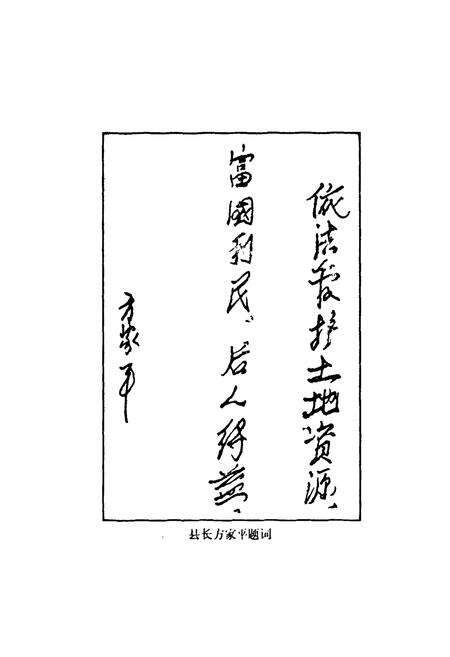 依法爱护土地資源、
富國利民、后人得益、
方家平
县长方家平题词